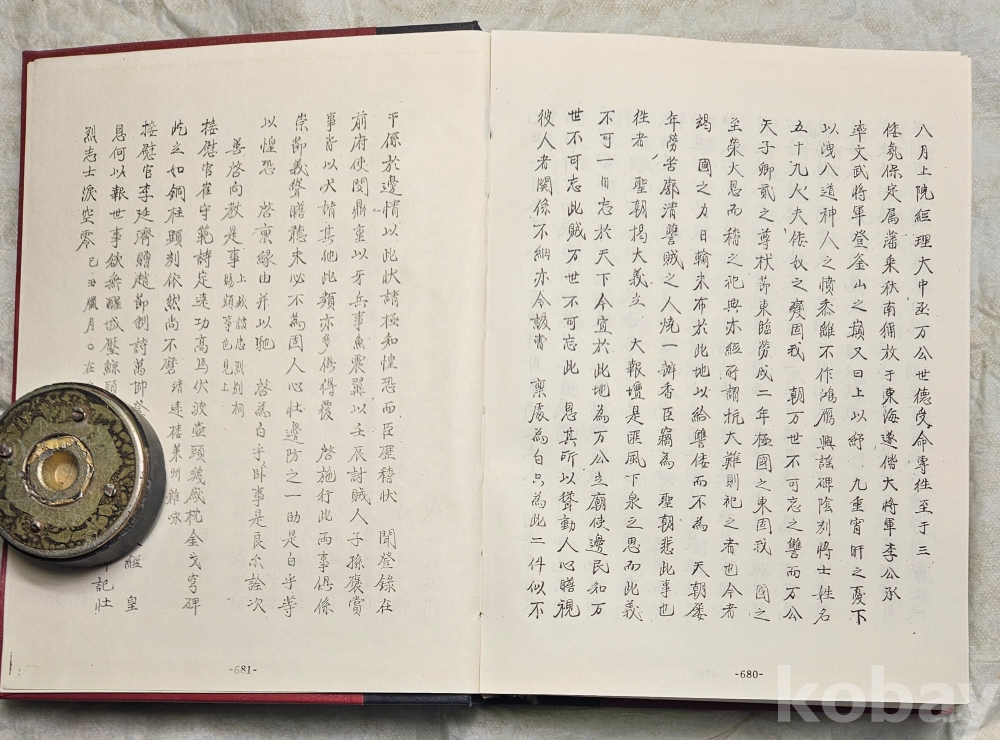 八月上院經理大中丞万公世德受命專徃至于三
倭氛保定属藩秉秋南狩放于東海遂偕大將軍李公承
率文武將軍登釜山之巔又曰上以紓 九重宵旰之憂下
以洩八道神人之憤黍離不作鴻鴈興謠碑陰刻將士姓名
五十九人夫倭奴之變固我 朝万世不可忘之讐而万公
天子卿貳之尊杖節東臨勞戍二年極國之東固我 國之
至榮大恩而稱之祀典亦經所謂抗大難則祀之者也今者
竭 國之力日輸來布於此地以給讐倭而不為 天朝屡
年勞苦廓清讐賊之人燒一瓣香臣竊為 聖朝悲此事也
徃者 聖朝揭大義立 大報壇是匪風下泉之思而此義
不可一日忘於天下今宜於此地為万公立廟使邊民知万
世不可忘此賊万世不可忘此 恩其所以聳動人心瞻視
彼人者関係不細亦令該曹 稟處為白只為此二件似不
-680-
干係於邊情以此狀請極知惶恐而臣歷稽狀 聞登錄在
前府使閔鼎重以牙兵事魚震翼以壬辰討賊人子孫褒賞
事皆以犬請其他此類亦多伏得覆 啓施行此兩事俱係
崇節義聳瞻聽未必不為固人心壮邊防之一助是白乎等
以惶恐 啓稟緣由并以馳 啓為白乎卧事是良尔詮次
善啓向教是事
接慰官崔守範詩定遠功高馬伏波壺頭幾廢枕金戈穹碑
屹立如銅柱顕刻依然尚不磨 靖遠楼萊州雜咏
接慰官李廷濟贈趙節制詩萬
恩何以報世事欲無醒城壓鯨頭 皇
烈志士淚空零 己丑臘月 記壮
-681-
kobay